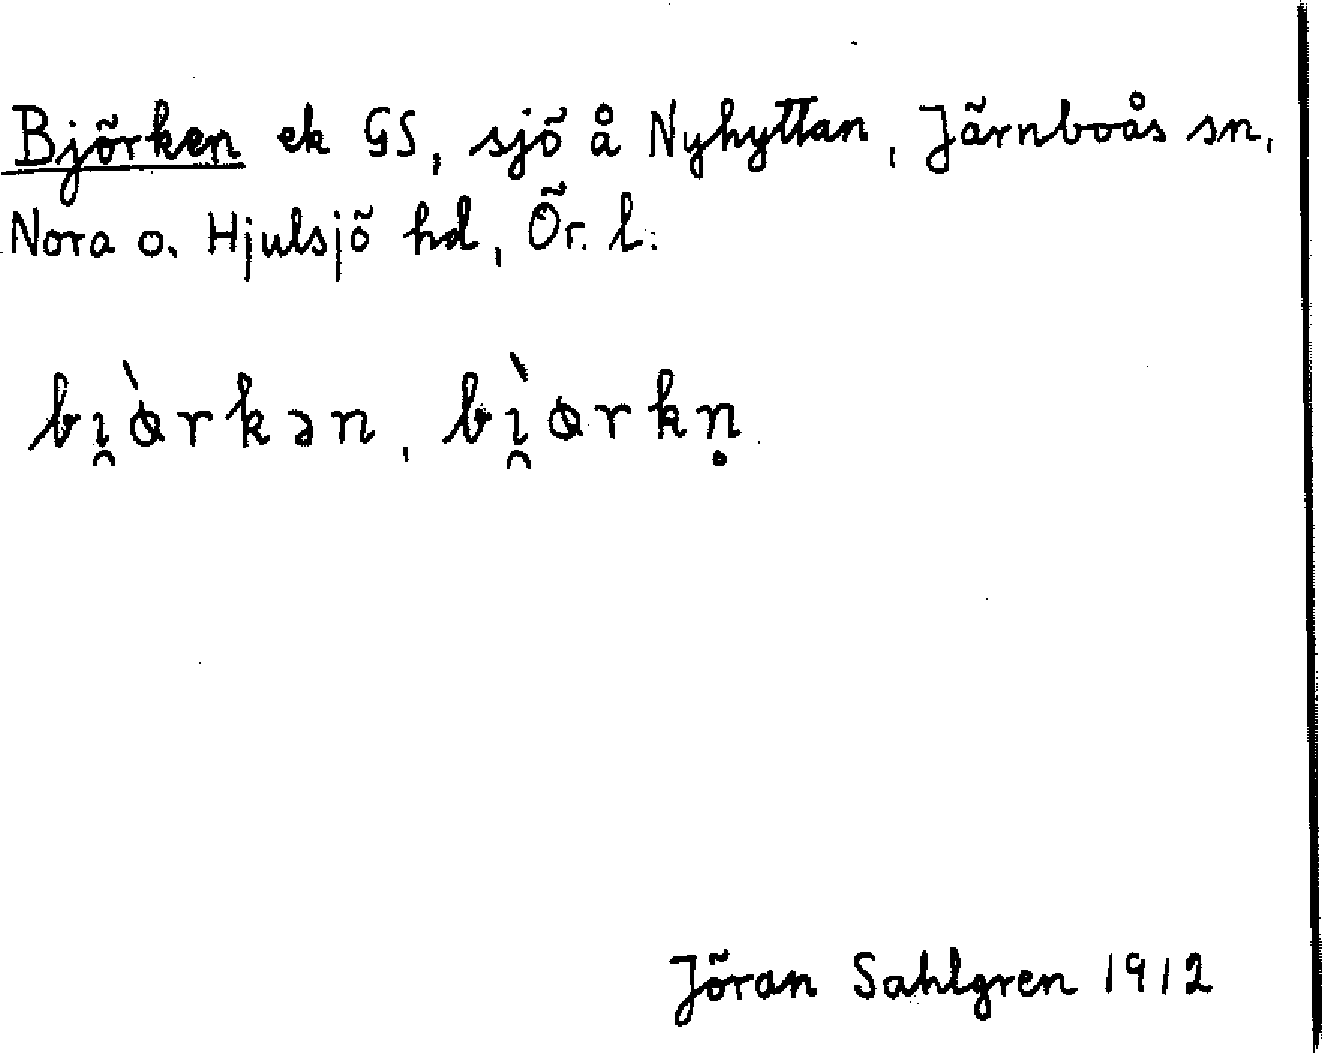 Björken ek GS, sjö å Nyhyttan, Järnboås sn,
Nora o. Hjulsjö hd, Ör. l.
bı̯ɵ̀rkən, bı̯̀ɵrkn̥
Jöran Sahlgren 1912